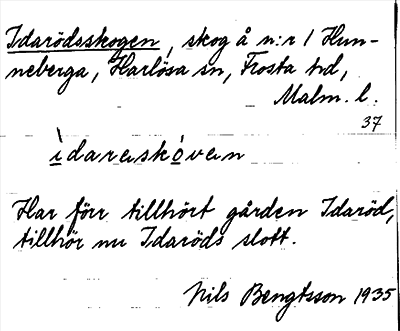 Idarödsskogen, skog å n:r 1 Hun-
neberga, Harlösa sn, Frosta hd,
Malm. l.
37
ìdarɐskóvɐn
Har förr tillhört gården Idaröd,
tillhör nu Idaröds slott.
Nils Bengtsson 1935